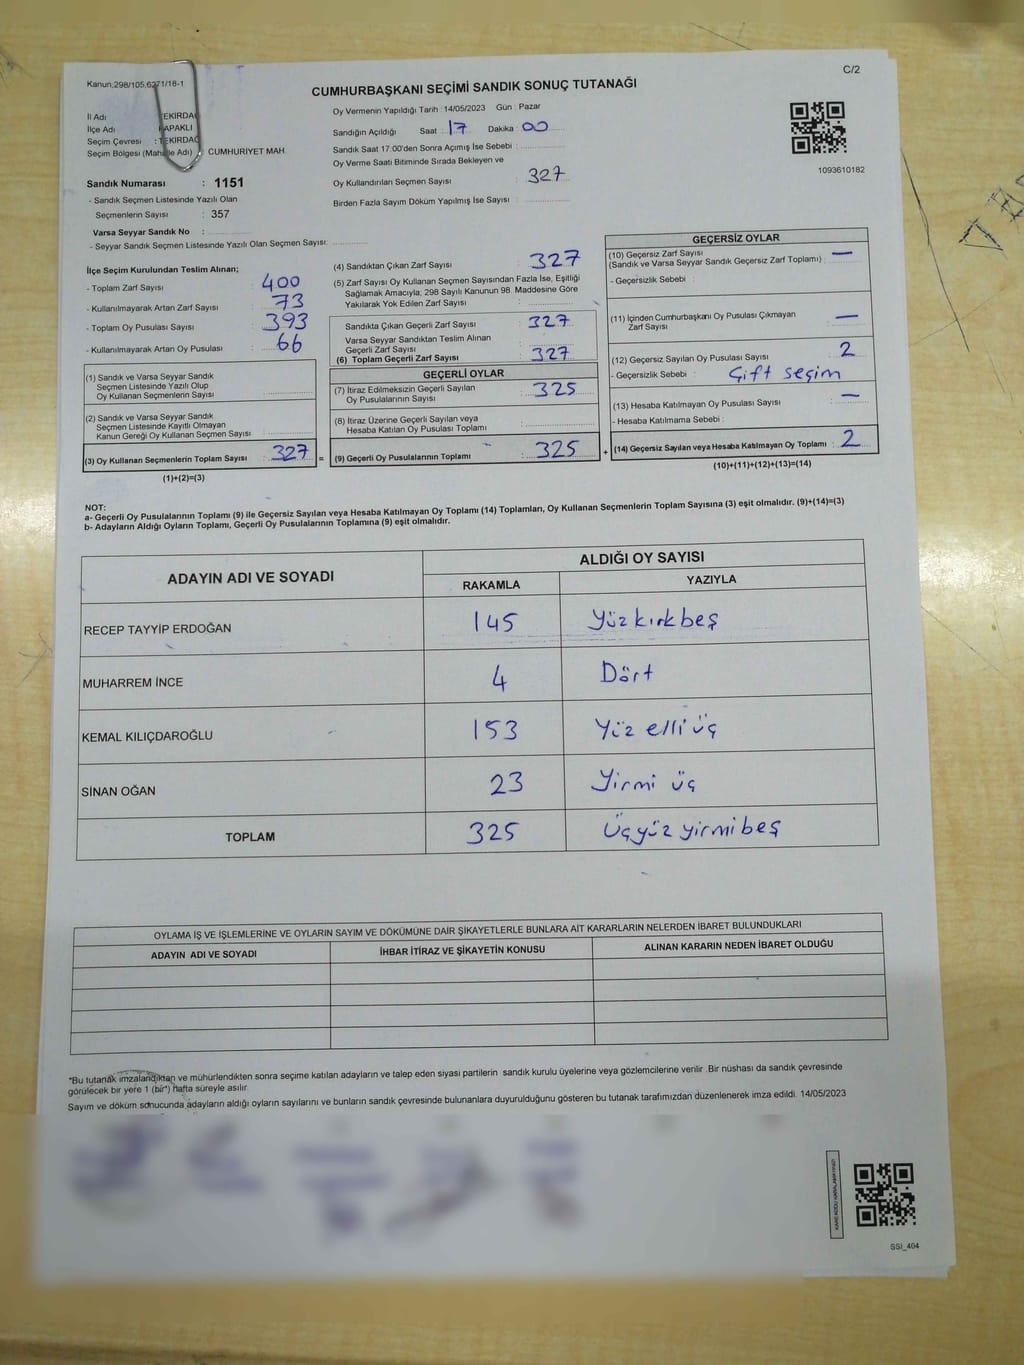 Kanun:298/105,6271/18-1
C/2
CUMHURBAŞKANI SEÇİMİ SANDIK SONUÇ TUTANAĞI
İl Adı TEKİRDAĞ
İlçe Adı KAPAKLI
Seçim Çevresi : TEKİRDAĞ
Seçim Bölgesi (Mahalle Adı) : CUMHURİYET MAH.
Sandık Numarası : 1151
- Sandık Seçmen Listesinde Yazılı Olan
Seçmenlerin Sayısı : 357
Varsa Seyyar Sandık No :
- Seyyar Sandık Seçmen Listesinde Yazılı Olan Seçmen Sayısı:
Oy Vermenin Yapıldığı Tarih : 14/05/2023 Gün : Pazar
Sandığın Açıldığı Saat : 17 Dakika : 00
Sandık Saat 17:00'den Sonra Açımış İse Sebebi :
Oy Verme Saati Bitiminde Sırada Bekleyen ve
Oy Kullandırılan Seçmen Sayısı : 327
Birden Fazla Sayım Döküm Yapılmış İse Sayısı :
1093610182
İlçe Seçim Kurulundan Teslim Alınan;
- Toplam Zarf Sayısı : 400
- Kullanılmayarak Artan Zarf Sayısı : 73
- Toplam Oy Pusulası Sayısı : 393
- Kullanılmayarak Artan Oy Pusulası : 66
(1) Sandık ve Varsa Seyyar Sandık
Seçmen Listesinde Yazılı Olup
Oy Kullanan Seçmenlerin Sayısı :
(2) Sandık ve Varsa Seyyar Sandık
Seçmen Listesinde Kayıtlı Olmayan
Kanun Gereği Oy Kullanan Seçmen Sayısı :
(3) Oy Kullanan Seçmenlerin Toplam Sayısı : 327 =
(1)+(2)=(3)
(4) Sandıktan Çıkan Zarf Sayısı : 327
(5) Zarf Sayısı Oy Kullanan Seçmen Sayısından Fazla İse, Eşitliği
Sağlamak Amacıyla, 298 Sayılı Kanunun 98. Maddesine Göre
Yakılarak Yok Edilen Zarf Sayısı :
Sandıkta Çıkan Geçerli Zarf Sayısı : 327
Varsa Seyyar Sandıktan Teslim Alınan
Geçerli Zarf Sayısı :
(6) Toplam Geçerli Zarf Sayısı : 327
GEÇERLİ OYLAR
(7) İtiraz Edilmeksizin Geçerli Sayılan
Oy Pusulalarının Sayısı : 325
(8) İtiraz Üzerine Geçerli Sayılan veya
Hesaba Katılan Oy Pusulası Toplamı :
(9) Geçerli Oy Pusulalarının Toplamı : 325 +
GEÇERSİZ OYLAR
(10) Geçersiz Zarf Sayısı
(Sandık ve Varsa Seyyar Sandık Geçersiz Zarf Toplamı) : —
- Geçersizlik Sebebi :
(11) İçinden Cumhurbaşkanı Oy Pusulası Çıkmayan
Zarf Sayısı : —
(12) Geçersiz Sayılan Oy Pusulası Sayısı : 2
- Geçersizlik Sebebi : Çift seçim
(13) Hesaba Katılmayan Oy Pusulası Sayısı : —
- Hesaba Katılmama Sebebi :
(14) Geçersiz Sayılan veya Hesaba Katılmayan Oy Toplamı : 2
(10)+(11)+(12)+(13)=(14)
NOT:
a- Geçerli Oy Pusulalarının Toplamı (9) ile Geçersiz Sayılan veya Hesaba Katılmayan Oy Toplamı (14) Toplamları, Oy Kullanan Seçmenlerin Toplam Sayısına (3) eşit olmalıdır. (9)+(14)=(3)
b- Adayların Aldığı Oyların Toplamı, Geçerli Oy Pusulalarının Toplamına (9) eşit olmalıdır.
ADAYIN ADI VE SOYADI ALDIĞI OY SAYISI
RAKAMLA YAZIYLA
RECEP TAYYİP ERDOĞAN 145 Yüz kırk beş
MUHARREM İNCE 4 Dört
KEMAL KILIÇDAROĞLU 153 Yüz elli üç
SİNAN OĞAN 23 Yirmi üç
TOPLAM 325 Üçyüz yirmi beş
OYLAMA İŞ VE İŞLEMLERİNE VE OYLARIN SAYIM VE DÖKÜMÜNE DAİR ŞİKAYETLERLE BUNLARA AİT KARARLARIN NELERDEN İBARET BULUNDUKLARI
ADAYIN ADI VE SOYADI İHBAR İTİRAZ VE ŞİKAYETİN KONUSU ALINAN KARARIN NEDEN İBARET OLDUĞU
*Bu tutanak imzalandıktan ve mühürlendikten sonra seçime katılan adayların ve talep eden siyasi partilerin sandık kurulu üyelerine veya gözlemcilerine verilir. Bir nüshası da sandık çevresinde
görülecek bir yere 1 (bir*) hafta süreyle asılır.
Sayım ve döküm sonucunda adayların aldığı oyların sayılarını ve bunların sandık çevresinde bulunanlara duyurulduğunu gösteren bu tutanak tarafımızdan düzenlenerek imza edildi. 14/05/2023
SSI_404